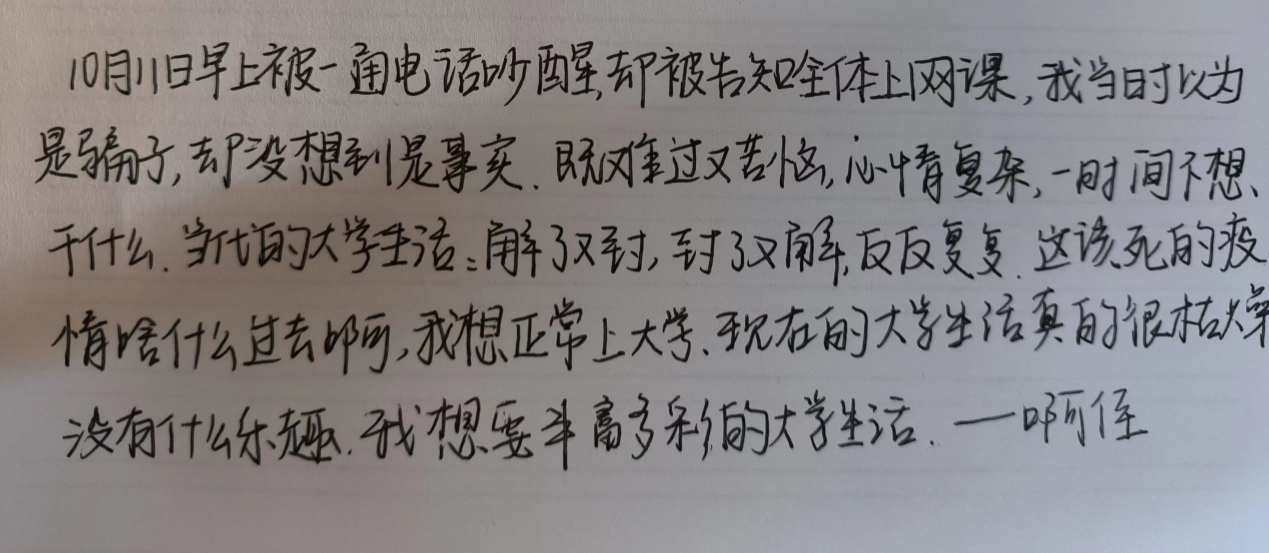 10月11日早上被一通电话吵醒,却被告知全体上网课,我当时以为
是骗子,却没想到是事实.既难过又苦恼,心情复杂,一时间不想、
干什么.当代的大学生活:解了又封,封了又解,反反复复.这该死的疫
情啥什么过去啊,我想正常上大学、现在的大学生活真的很枯燥
没有什么乐趣.我想要丰富多彩的大学生活.—啊